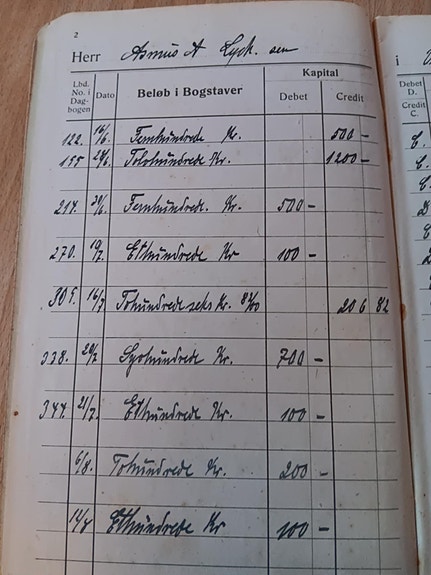 2
Herr Asmus A Lyck. sen i
Kapital
Lbd. No. i Dag-bogen Dato Beløb i Bogstaver Debet Credit Debet D. Credit C.
122. 16/6. Femhundrede Kr. 500 - C.
155 24/6. Tolvhundrede Kr. 1200 - C.
217. 30/6. Femhundrede. Kr. 500 -
270. 10/7. Ethundrede Kr 100 -
305. 16/7 Tohundrede seks Kr. 82/00 206 82
338. 20/7 Syvhundrede Kr. 700 -
344. 21/7. Ethundrede Kr. 100 -
6/8. Tohundrede Kr. 200 -
14/8 Ethundrede Kr 100 -